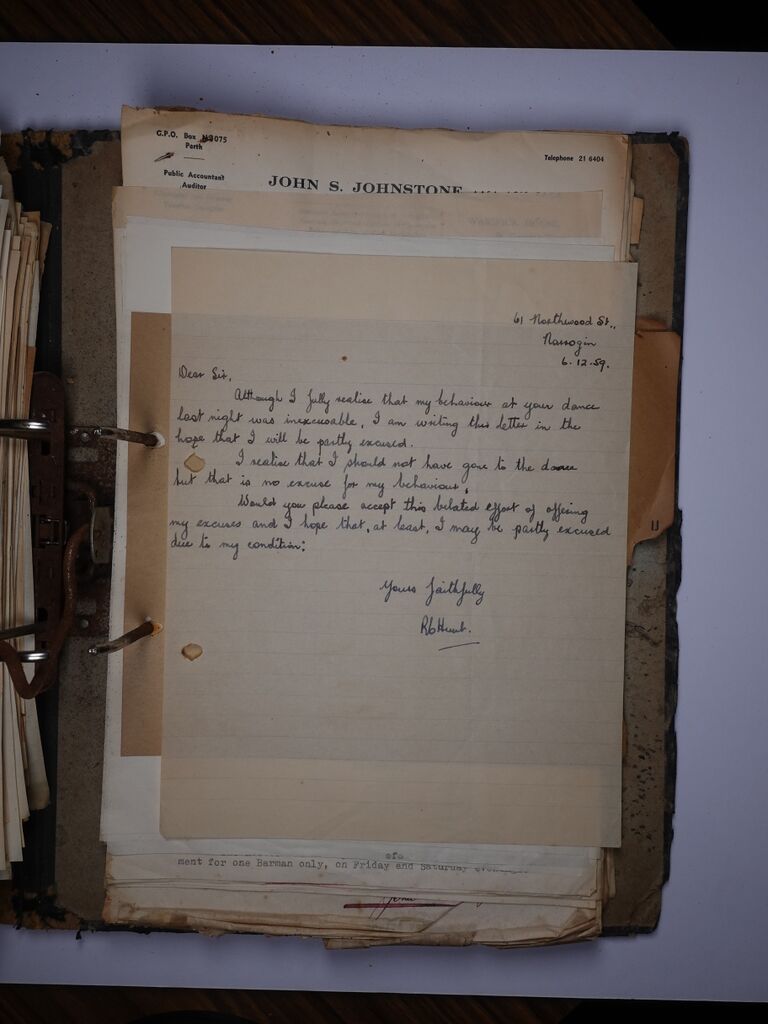 G.P.O. Box N1075
Perth
Telephone 21 6404
Public Accountant
Auditor
JOHN S. JOHNSTONE
61 Northwood St.,
Narrogin
6.12.59.
Dear Sir,
Although I fully realise that my behaviour at your dance
last night was inexcusable, I am writing this letter in the
hope that I will be partly excused.
I realise that I should not have gone to the dance
but that is no excuse for my behaviour.
Would you please accept this belated effort of offering
my excuses and I hope that, at least, I may be partly excused
due to my condition:
Yours faithfully
R G Hunt.
ment for one Barman only, on Friday and Saturday